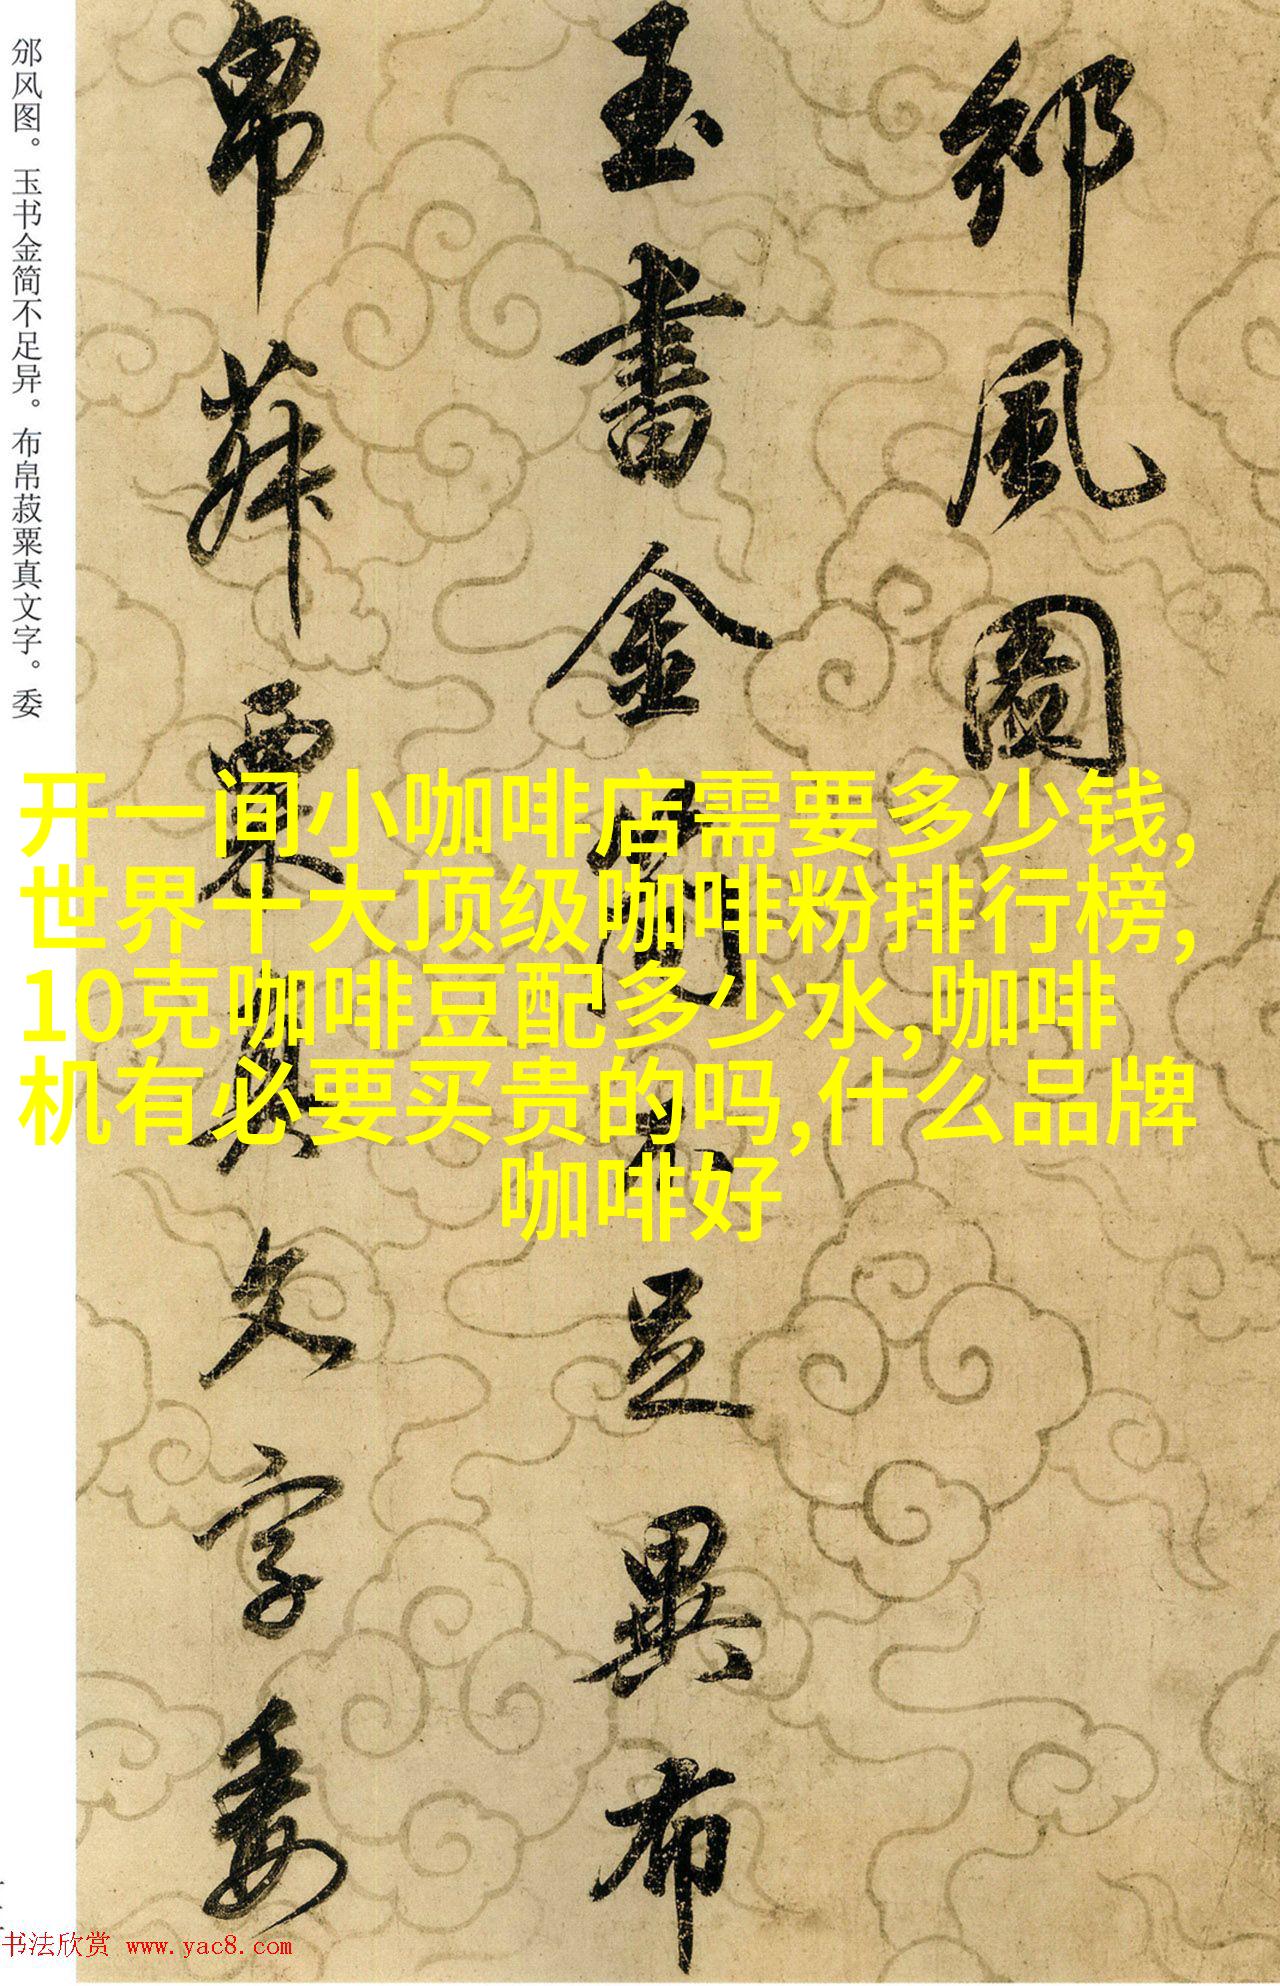 邠风图。玉书金简不足异。布帛菽粟真文字。委
邠風圖
玉書金簡不足異布
帛菽粟真文字委
开一间小咖啡店需要多少钱,
世界十大顶级咖啡粉排行榜,
10克咖啡豆配多少水,咖啡
机有必要买贵的吗,什么品牌
咖啡好
书法欣赏 www.yac8.com